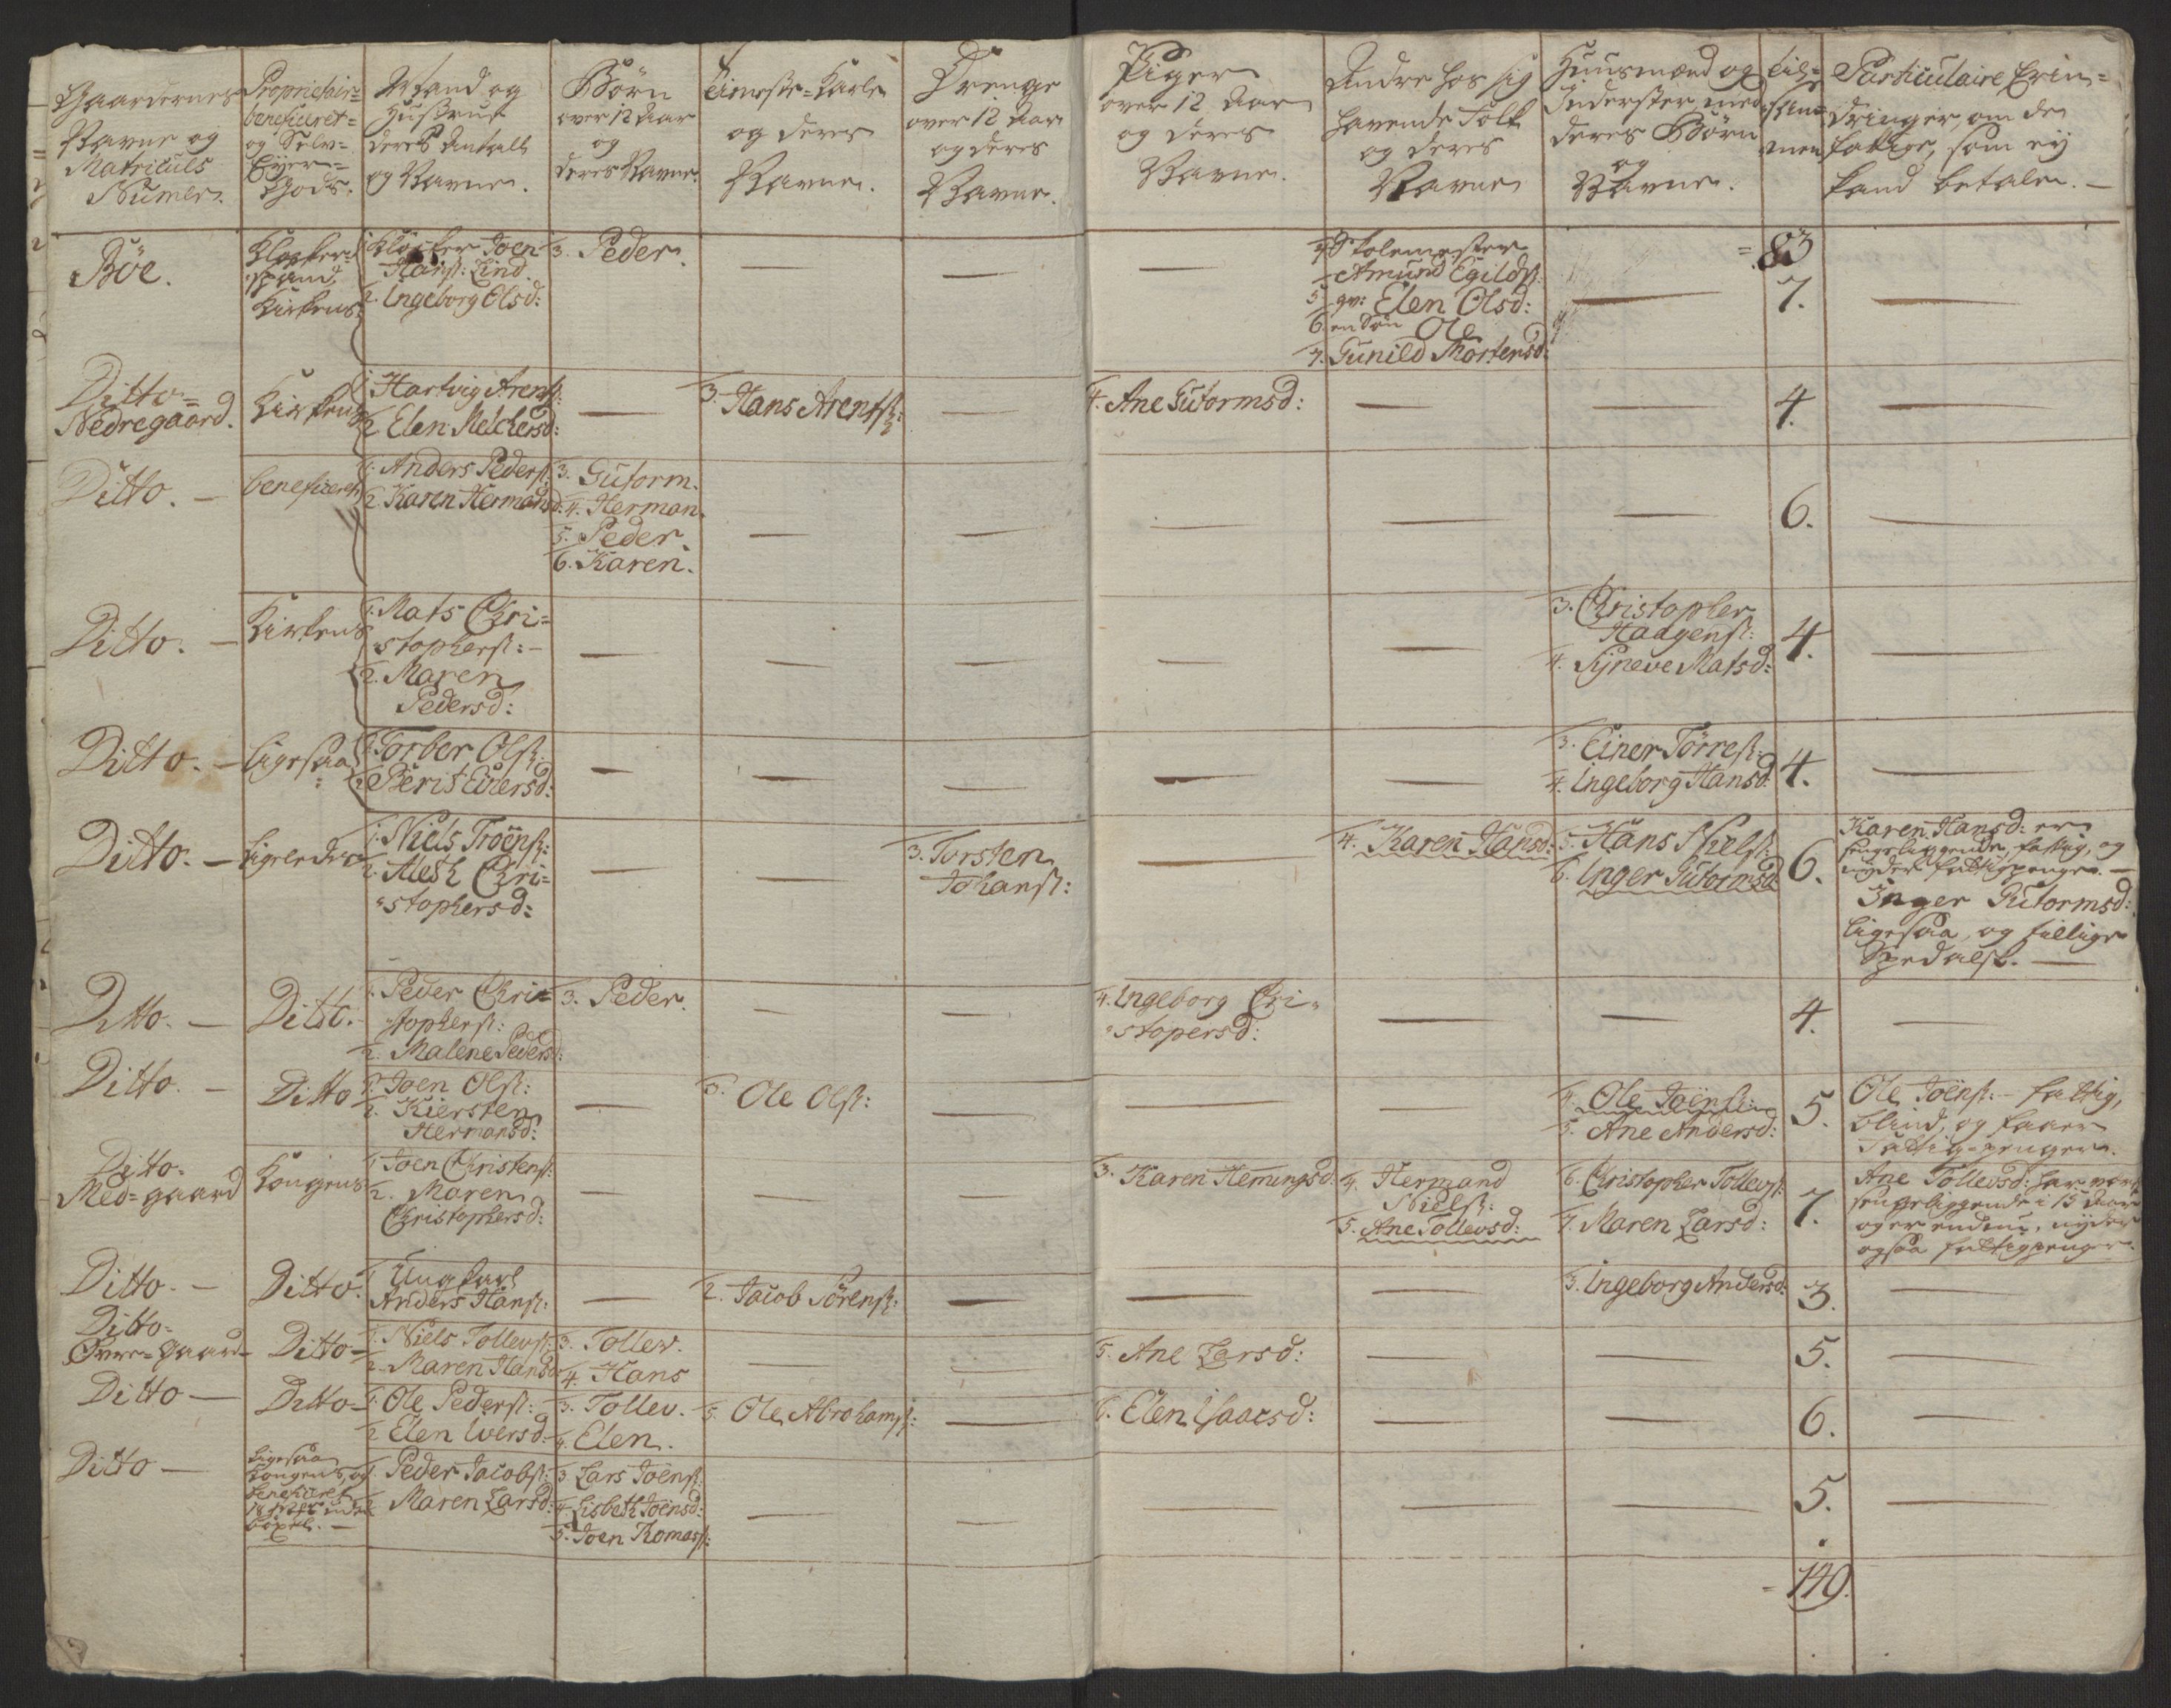 Gaardernes
Navne og
Matriculs
Numer.
Proprietair=
beneficeret=
og Selv=
Eyer=
Gods.
Mand og
Hustrue
deres Antall
og Navne.
Børn
over 12 Aar
og
deres Navne.
Tieneste=Karle
og deres
Navne.
Drenge
over 12 Aar
og deres
Navne.
Piger
over 12 Aar
og deres
Navne.
Andre hos sig
havende Folk
og deres
Navne
Huusmænd og
Inderster, med
deres Børn
og
Navne.
till=
sam=
men
Particulaire Erin=
dringer, om de
fattige, som ey
kand betale. —
= 83
Böe.
Klokker=
Kirkens
1. Klokker Joen
Hanss: Lind
2. Ingeborg Olsd:
3. Peder.
—
—
—
4 Skolemester
Amund Egilds:
5 qv: Elen Olsd:
6. en Søn Ole
7. Gunild Mortensd:
—
7.
—
Ditto=
Nedregaard.
Kirkens
1. Hartvig Arents:
2 Elen Melchersd:
—
3. Hans Arentss:
—
4. Ane Gutormsd:
—
—
4.
—
Ditto. —
beneficeret
1. Anders Peders:
2 Karen Hermansd:
3. Gutorm.
4. Herman.
5. Peder.
6. Karen.
—
—
—
—
—
6.
—
Ditto. —
Kirkens
1. Mats Chri=
stophers: —
2. Maren
Pedersd:
—
—
—
—
—
3. Christopher
Haagens:
4. Syneve Matsd:
4.
—
Ditto. —
ligesaa
1. Torber Ols:
2. Berit Einersd:
—
—
—
—
—
3. Einer Törres:
4. Ingeborg Hansd:
4.
—
Ditto. —
1. Niels Troens:
2. Aleth Chri=
stophersd:
—
—
3. Torsten
Johans:
—
4. Karen Hansd:
5. Hans Niels:
6. Inger Gutormsd
6.
Karen Hansd: er
sengeliggende, fattig, og
nyder fattigpenge. —
Inger Gutormsd:
ligesaa, og tillige
Spedalsk. —
Ditto. —
Ditto.
1. Peder Chri=
stophers:
2. Malene Pedersd:
3. Peder.
—
—
4. Ingeborg Chri=
stopersd:
—
—
4.
—
Ditto. —
Ditto
1. Joen Ols:
2. Kiersten
Hermansd:
—
3. Ole Ols:
—
—
—
4. Ole Joens:
5. Ane Andersd:
5.
Ole Joens: — fattig,
blind, og faaer
Fattig=penger.
Ditto.
Med=gaard
Kongens
1 Joen Christens:
2. Maren
Christophersd:
—
—
—
3. Karen Hemingsd:
4. Hermand
Niels:
5. Ane Tollevsd:
6. Christopher Tollevs:
7. Maren Larsd:
7.
Ane Tollevsd: har været
sengeliggende i 15 Aar
og er endnu, nyder
ogsaa fattigpenge.
Ditto. —
Ditto.
1 Ung karl
Anders Hans:
—
2. Jacob Sörens:
—
—
—
3. Ingeborg Andersd:
3.
—
Ditto.
Øvre=gaard
Ditto —
1. Niels Tollevs:
2. Maren Hansd
3. Tollev.
4. Hans
—
—
5. Ane Larsd:
—
—
5.
—
Ditto —
Ditto —
1. Ole Peders:
2 Elen Iversd:
3. Tollev.
4. Elen.
5. Ole Abrahams:
—
6. Elen Isaacsd:
—
—
6.
—
Ditto —
ligesaa
Kongens, og
beneficeret
1. Peder Jacobs:
2 Maren Larsd:
3. Lars Joens:
4. Lisbeth Joensd:
5. Joen Tomass:
—
—
—
—
—
5.
—
= 149.